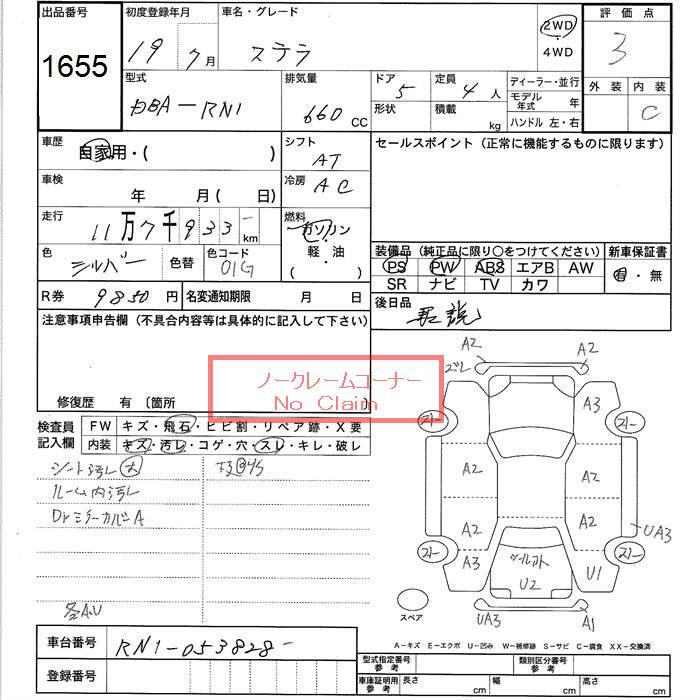 出品番号
1655
初度登録年月
19 7月
車名・グレード
ステラ
2WD
・
4WD
評価点
3
外装 内装
C
型式
DBA-RN1
排気量
660 CC
ドア
5
形状
定員
4 人
積載
kg
ディーラー・並行
モデル年式 年
ハンドル 左・右
車歴
自家用・( )
シフト
AT
セールスポイント (正常に機能するものに限ります)
車検
年 月( 日)
冷房
AC
走行
11万7千933- km
燃料
ガソリン
軽・油
( )
色
シルバー
色替
色コード
01G
装備品 (純正品に限り○をつけてください)
新車保証書
PS PW ABS エアB AW
SR ナビ TV カワ
有・無
R券 9850円
名変通知期限 月 日
後日品
取説
注意事項申告欄 (不具合内容等は具体的に記入して下さい)
ノークレームコーナー
No Claim
修復歴 有 〔箇所
検査員
記入欄
FW キズ・飛石・ヒビ割・リペア跡・X要
内装 キズ・汚レ・コゲ・穴・スレ・キレ・破レ
シート汚レ 大
ルーム内汚レ
Drミラーカバー A
各A.U
A2 A2
ズレ
A3
スリ スリ
A2 A2
A2 A2
UA3
スリ スリ
A3
U2
U1
UA3 A1
スペア
A-キズ E-エクボ U-凹み W-補修跡 S-サビ C-腐食 XX-交換済
車台番号
RN1-053828-
登録番号
型式指定番号
参考
類別区分番号
参考
車庫証明用
参考
長さ cm
幅 cm
高さ cm